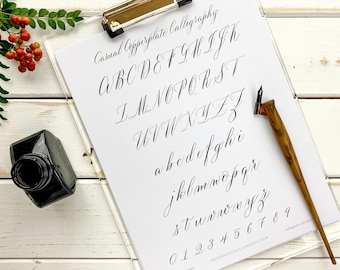 Casual Copperplate Calligraphy
A B C D E F G H I J K
L M N O P Q R S T
U V W X Y Z
a b c d e f g h i
j k l m n o p q r
s t u v w x y z
0 1 2 3 4 5 6 7 8 9